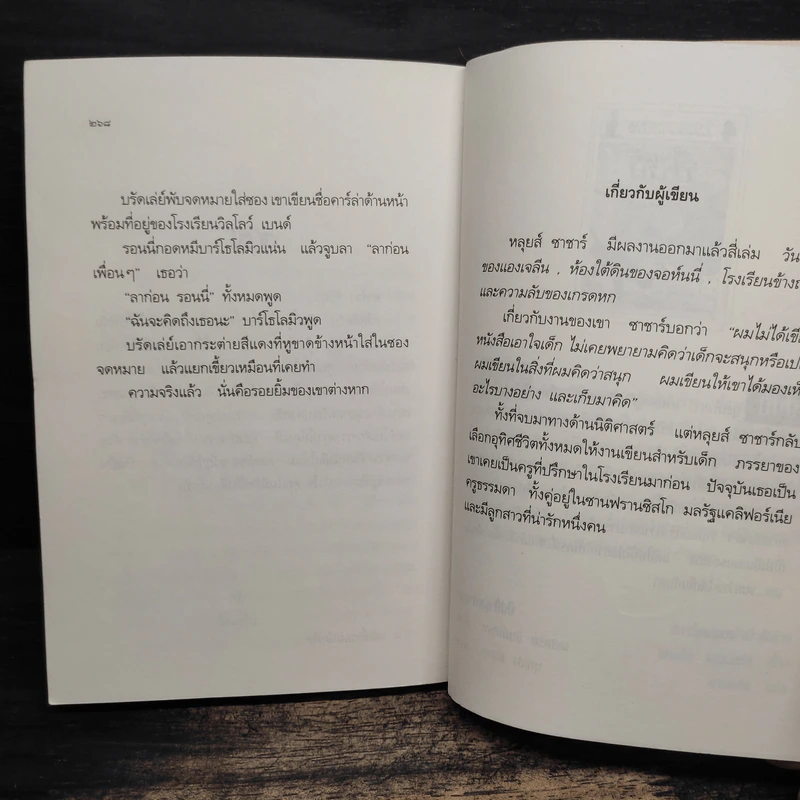 ๒๖๘
บรัดเล่ย์พับจดหมายใส่ซอง เขาเขียนชื่อคาร์ล่าด้านหน้า
พร้อมที่อยู่ของโรงเรียนวิลโลว์ เบนด์
รอนนี่กอดหมีบาร์โธโลมิวแน่น แล้วจูบลา “ลาก่อน
เพื่อนๆ” เธอว่า
“ลาก่อน รอนนี่” ทั้งหมดพูด
“ฉันจะคิดถึงเธอนะ” บาร์โธโลมิวพูด
บรัดเล่ย์เอากระต่ายสีแดงที่หูขาดข้างหน้าใส่ในซอง
จดหมาย แล้วแยกเขี้ยวเหมือนที่เคยทำ
ความจริงแล้ว นั่นคือรอยยิ้มของเขาต่างหาก
เกี่ยวกับผู้เขียน
หลุยส์ ซาชาร์ มีผลงานออกมาแล้วสี่เล่ม วัน
ของแองเจลีน , ห้องใต้ดินของจอห์นนี่ , โรงเรียนข้าง
และความลับของเกรดหก
เกี่ยวกับงานของเขา ซาชาร์บอกว่า “ผมไม่ได้
หนังสือเอาใจเด็ก ไม่เคยพยายามคิดว่าเด็กจะสนุกหรือ
ผมเขียนในสิ่งที่ผมคิดว่าสนุก ผมเขียนให้เขาได้มอง
อะไรบางอย่าง และเก็บมาคิด”
ทั้งที่จบมาทางด้านนิติศาสตร์ แต่หลุยส์ ซาชาร์กลับ
เลือกอุทิศชีวิตทั้งหมดให้งานเขียนสำหรับเด็ก ภรรยาของ
เขาเคยเป็นครูที่ปรึกษาในโรงเรียนมาก่อน ปัจจุบันเธอเป็น
ครูธรรมดา ทั้งคู่อยู่ในซานฟรานซิสโก มลรัฐแคลิฟอร์เนีย
และมีลูกสาวที่น่ารักหนึ่งคน